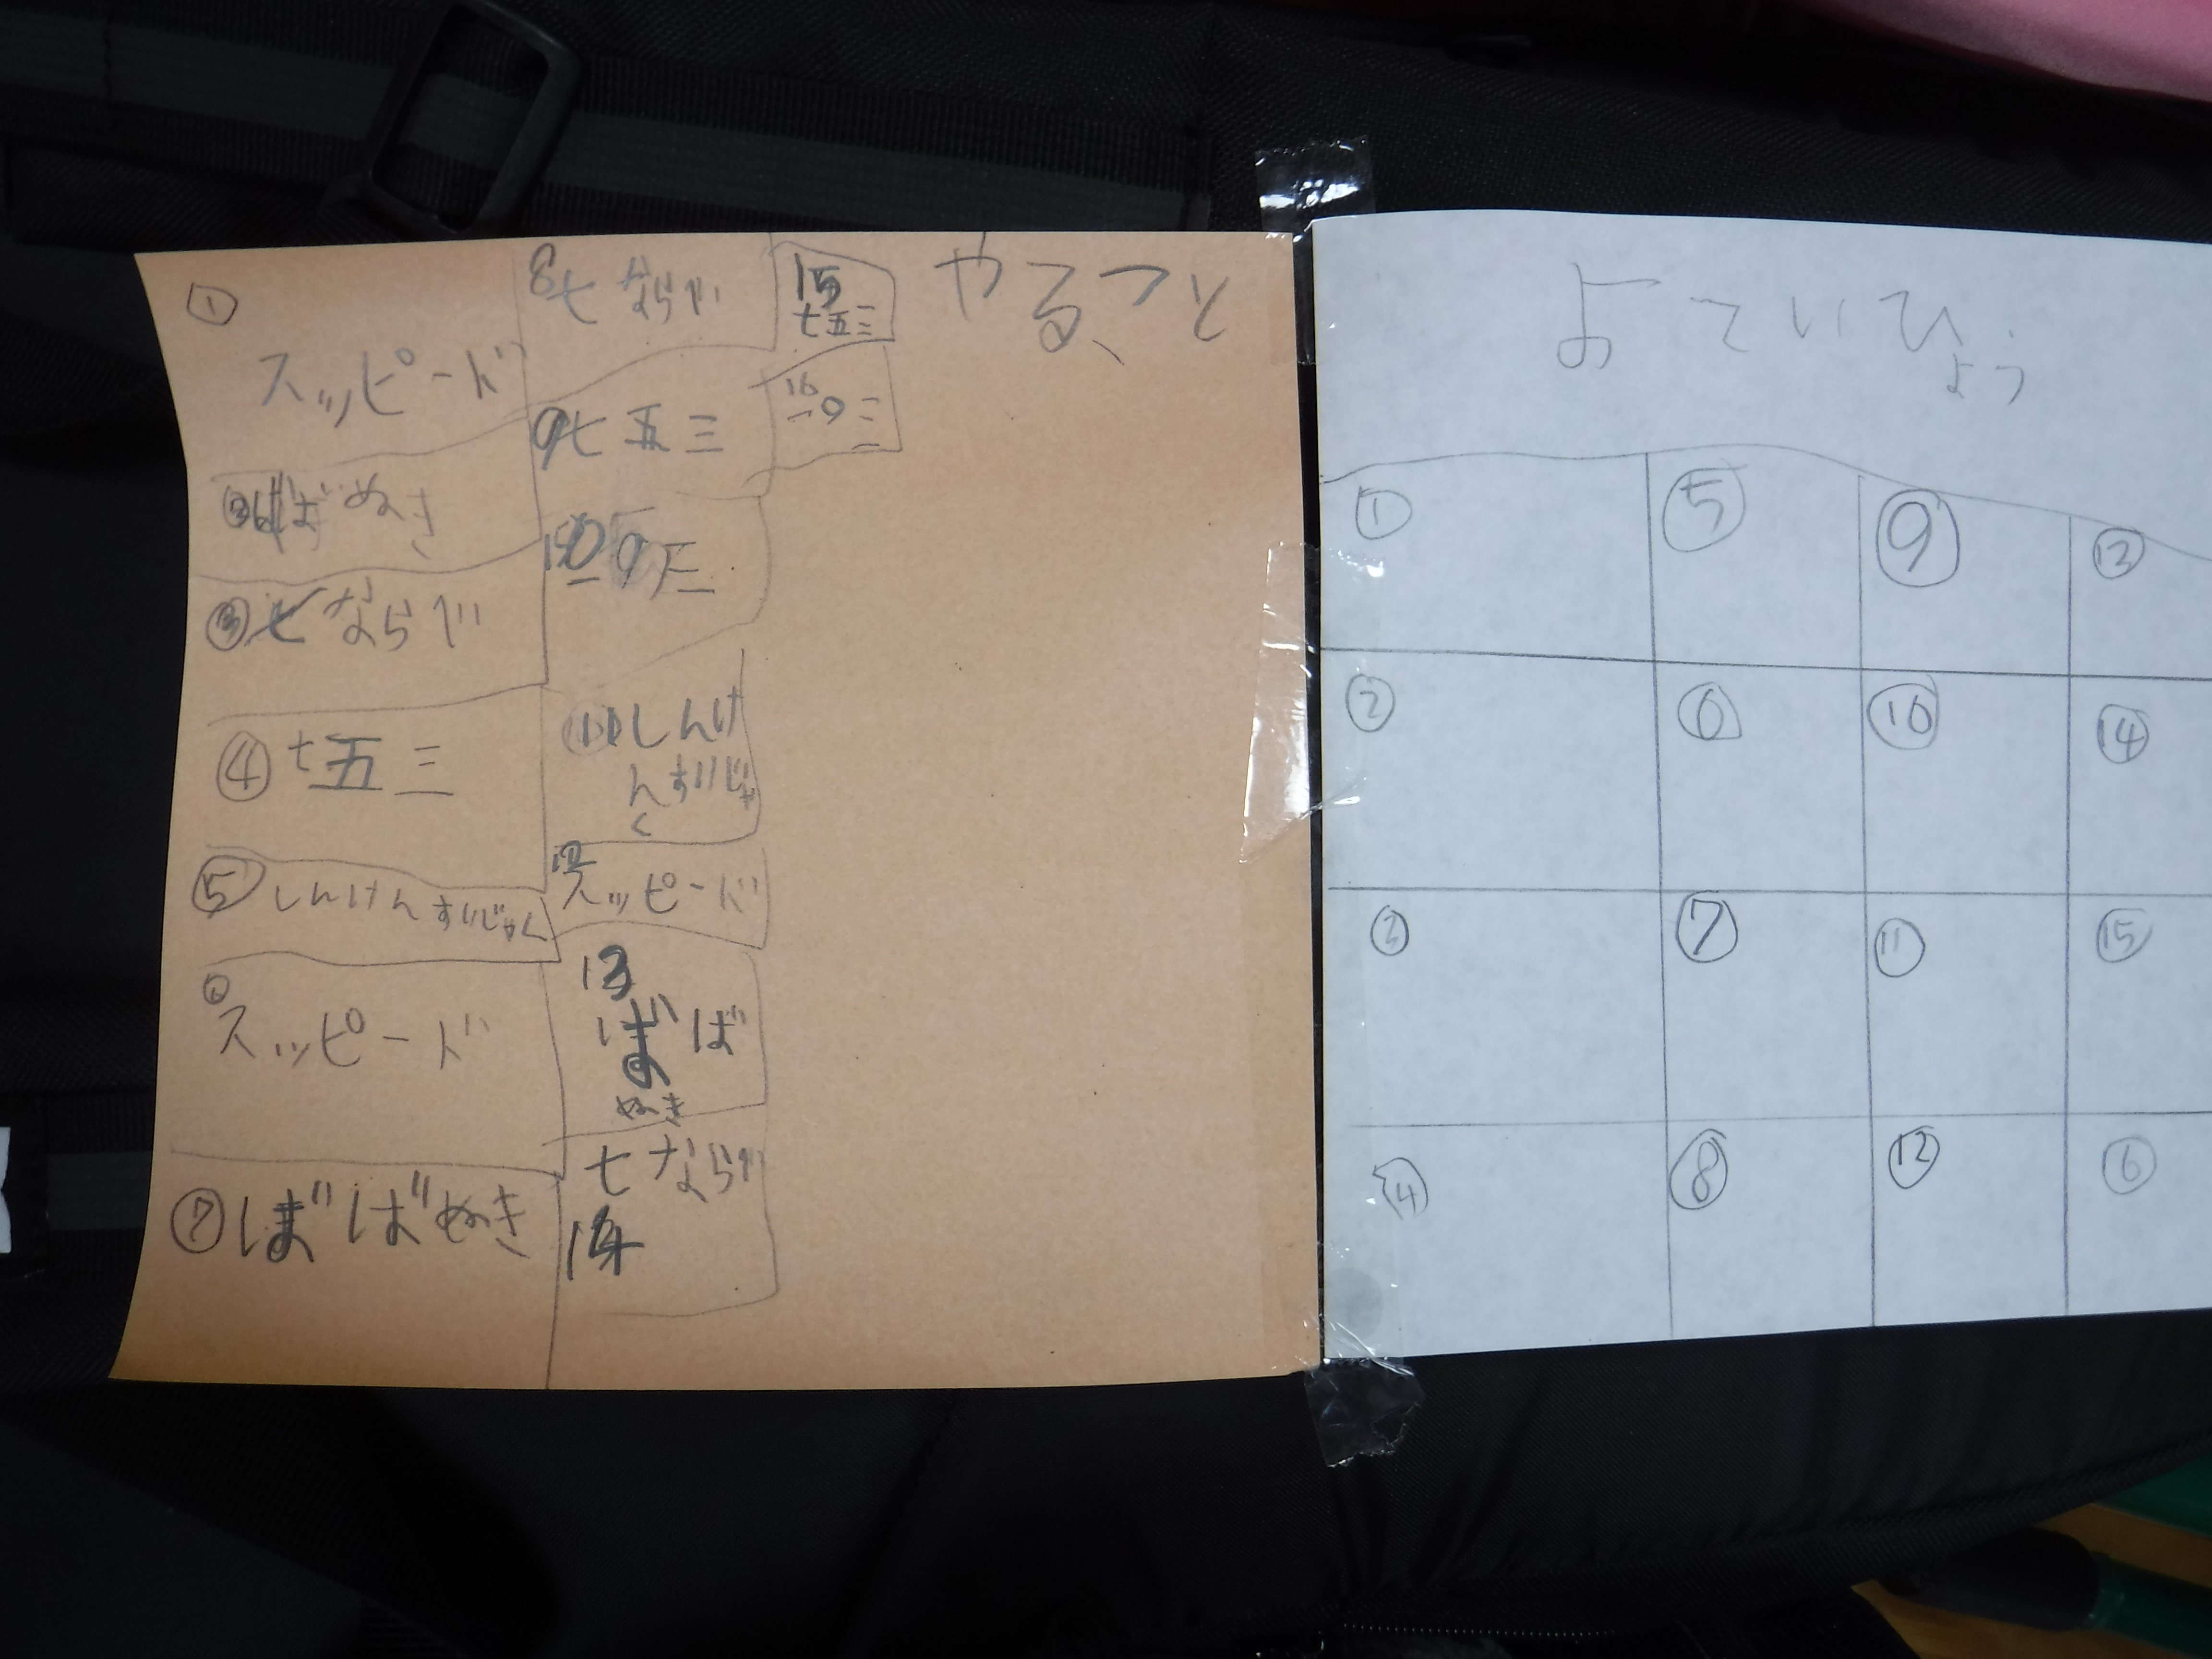 やること
①
スッピード
ばばぬき
③七ならべ
④七五三
⑤しんけんすいじゃく
⑥
スッピード
⑦ばばぬき
8七ならべ
9七五三
しんけ
んすいじゃ
く
12
スッピード
13
ばば
ぬき
七ならべ
14
15
七五三
16
一〇三
よていひょう
① ⑤ ⑨ ⑬
② ⑥ ⑩ ⑭
③ ⑦ ⑪ ⑮
④ ⑧ ⑫ ⑥